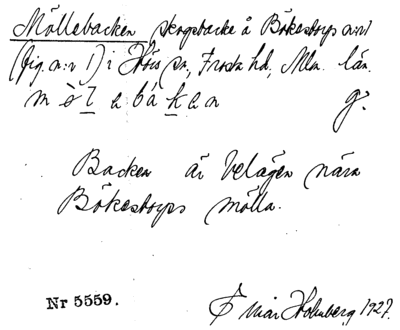 Möllebacken skogsbacke å Bökestorps
(fig. n:r 1) i Höörs sn, Frosta hd, Mlm. län.
g.
Backen är belägen nära
Bökestorps mölla.
Nr 5559.
Ivar Holmberg 1927.